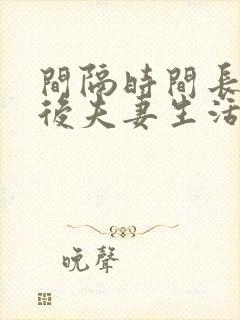 間隔時間長
後夫妻生活
晚聲